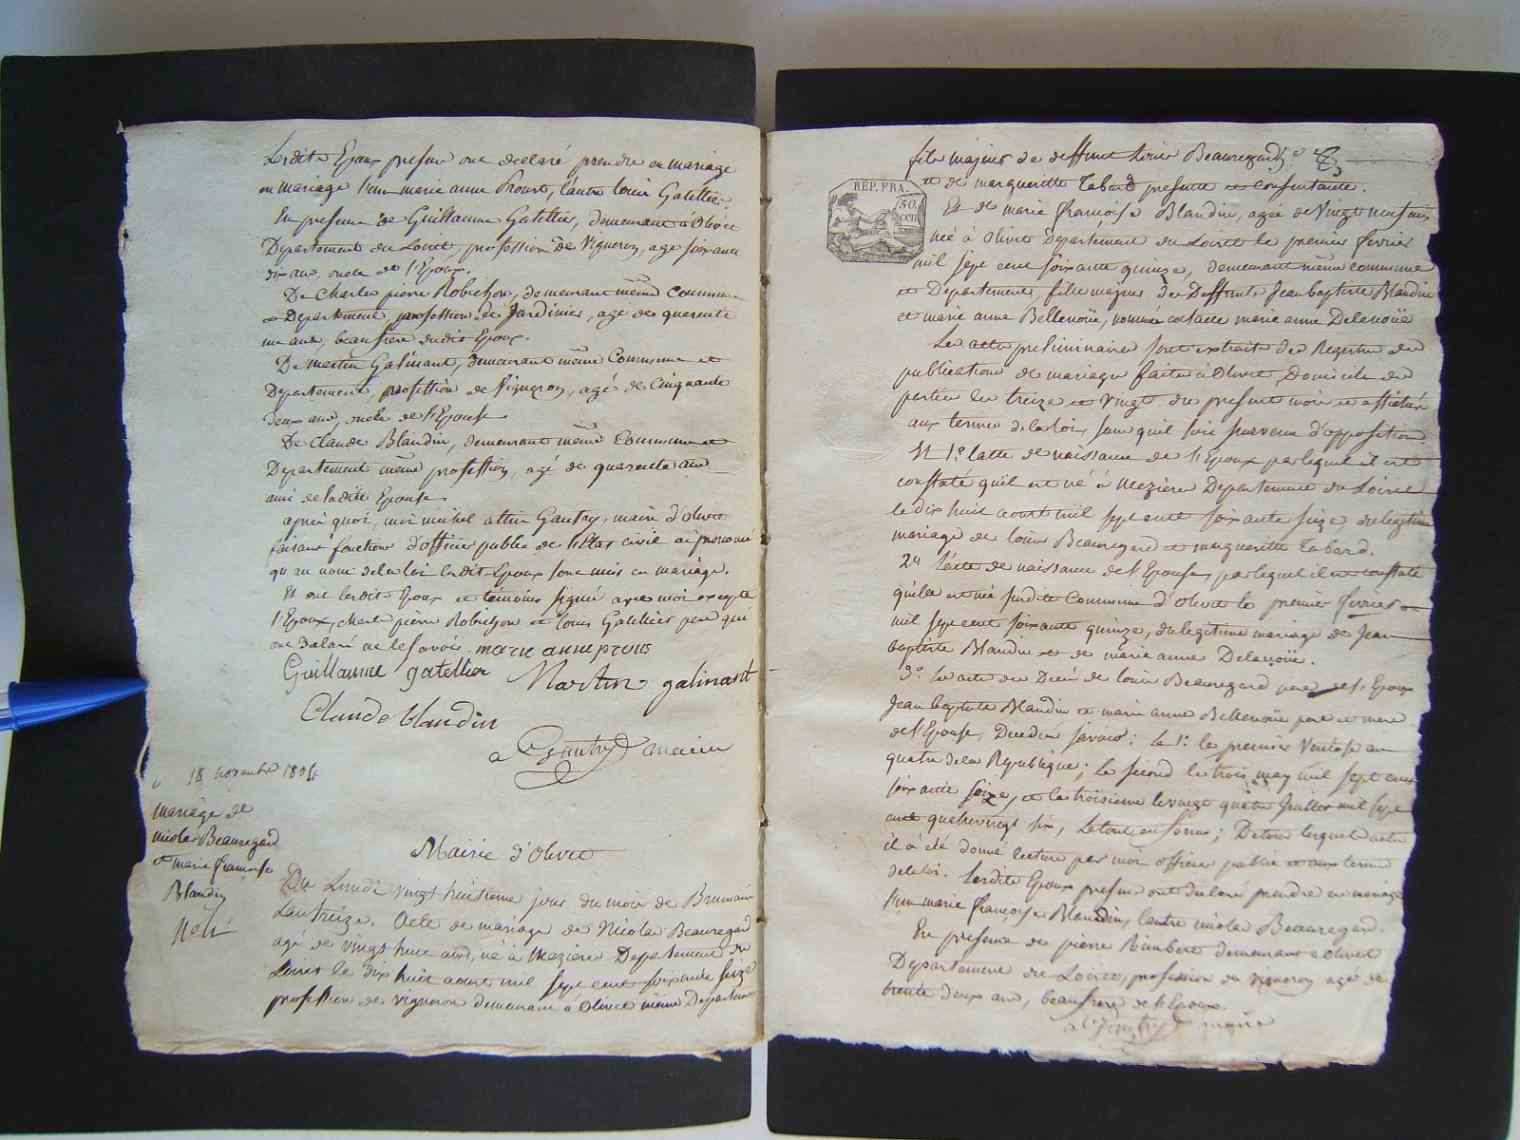 Lesdits Epoux presens ont declaré prendre en mariage
en mariage l'un marie anne Prous, l'autre louis Gatellier.
En presence de Guillaume Gatellier, demeurant à Olivet
Departement du Loiret, profession de Vigneron, agé soixante
dix ans, oncle de l'Epoux.
De charles pierre Robichon, demeurant même Commune
et Departement, profession de Jardinier, agé de quarente
un ans, beaufrere dudit Epoux.
De martin Galinant, demeurant même Commune et
Departement, profession de Vigneron, agé de Cinquante
deux ans, oncle de l'Epouse
De claude Blandin, demeurant même Commune et
Departement même profession, agé de quarente ans
ami de ladite Epouse
après quoi, moi michel Gautry, maire d'Olivet
faisant fonction d'officier public de l'Etat civil ai prononcé
qu'au nom de la loi lesdits Epoux sont unis en mariage.
Et ont lesdits Epoux et témoins signé avec moi excepté
l'Epoux, charles pierre Robichon et louis Gatellier pere qui
ont declaré ne le savoir. marie anne prous
Guillaume gatellier Martin galinard
Claude blandin
Gautry maire
18 novembre 1804
mariage de
nicolas Beauregard
et marie françoise
Blandin
Mairie d'Olivet
Du Lundi vingt huitieme jour du mois de Brumaire
L'an treize. Acte de mariage de Nicolas Beauregard
agé de vingt huit ans, né à Meziere Departement du
Loiret le dix huit aout mil sept cent soixante seize
profession de vigneron demeurant a Olivet même Departement
fils majeur de deffunt Louis Beauregard
et de margueritte Tabard presente et consentante.
REP. FRA.
50.
cen
Et de marie françoise Blandin, agée de Vingt neuf ans
née à Olivet Departement du Loiret le premier fevrier
mil sept cent soixante quinze, demeurant même commune
et Departement, fille majeur de Deffunts Jean baptiste Blandin
et marie anne Bellenoüe, nommée marie anne Delenoüe
Les actes preliminaires sont extraits des Registres des
publications de mariage faites à Olivet Domicile des
parties les treize et Vingt du present mois et affichées
aux termes de la loi, sans quil soit survenu d'opposition.
Et 1.º l'acte de naissance de l'Epoux par lequel il est
constaté quil est né à Meziere Departement du Loiret
le dix huit aout mil sept cent soixante seize du legitime
mariage de louis Beauregard et margueritte Tabard.
2º l'acte de naissance de l'Epouse, par lequel il est constaté
qu'elle est née susdite Commune d'Olivet le premier fevrier
mil sept cent soixante quinze, du legitime mariage de Jean
baptiste Blandin et de marie anne Delenoüe.
3º les actes de Décès de louis Beauregard pere de l'Epoux
Jean baptiste Blandin et marie anne Bellenoüe pere et mere
de l'Epouse, Decedés savoir: le 1.er le premier Ventose an
quatre de la Republique; le second le trois may mil sept cent
soixante seize, et la troisieme le vingt quatre Juillet mil sept
cent quatrevingt six, le tout en forme; De tous lesquels actes
il a été donné lecture par moi officier public et aux termes
de la loi. Lesdits Epoux presens ont declaré prendre en mariage
l'un marie françoise Blandin, l'autre nicolas Beauregard.
En presence de pierre Rimbert demeurant à Olivet
Departement du Loiret, profession de vigneron agé de
trente deux ans, beaufrere de l'Epoux.
Gautry maire